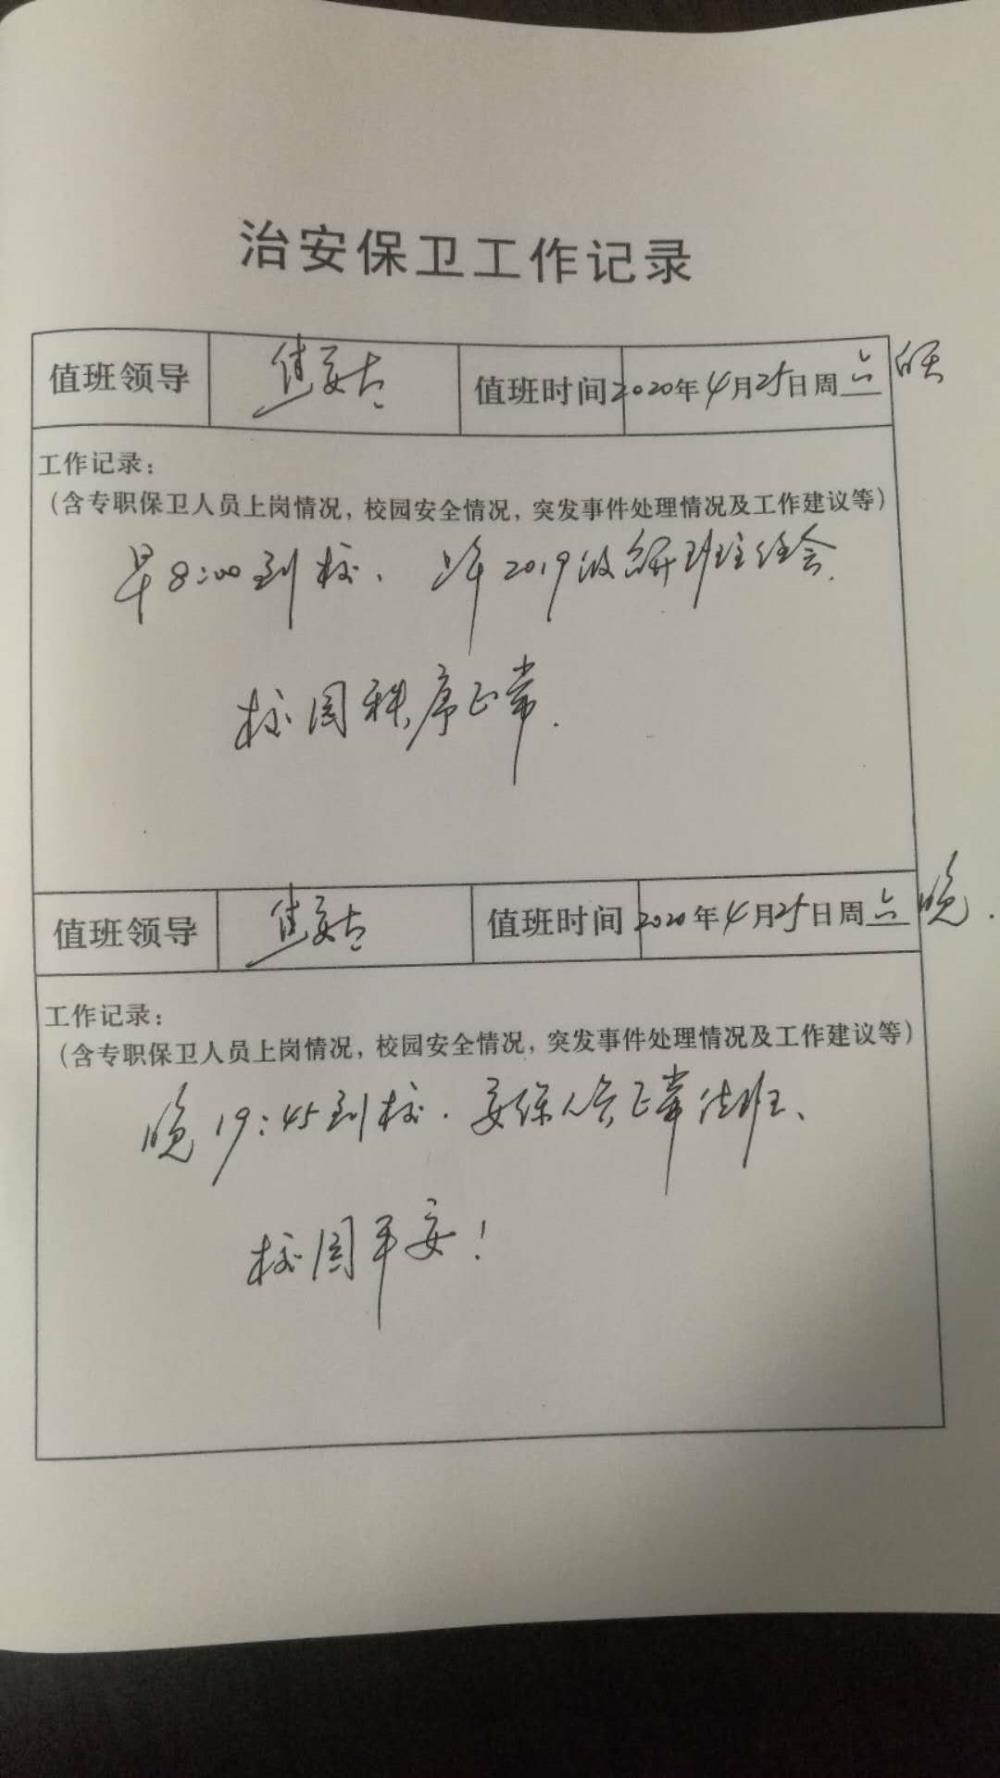 治安保卫工作记录
值班领导 值班时间 2020年4月25日周六 白天
工作记录：
（含专职保卫人员上岗情况，校园安全情况，突发事件处理情况及工作建议等）
早8:00到校、上午2019级召开班主任会.
校园秩序正常.
值班领导 值班时间 2020年4月25日周六 晚.
工作记录：
（含专职保卫人员上岗情况，校园安全情况，突发事件处理情况及工作建议等）
晚19:45到校.安保人员正常值班、
校园平安！